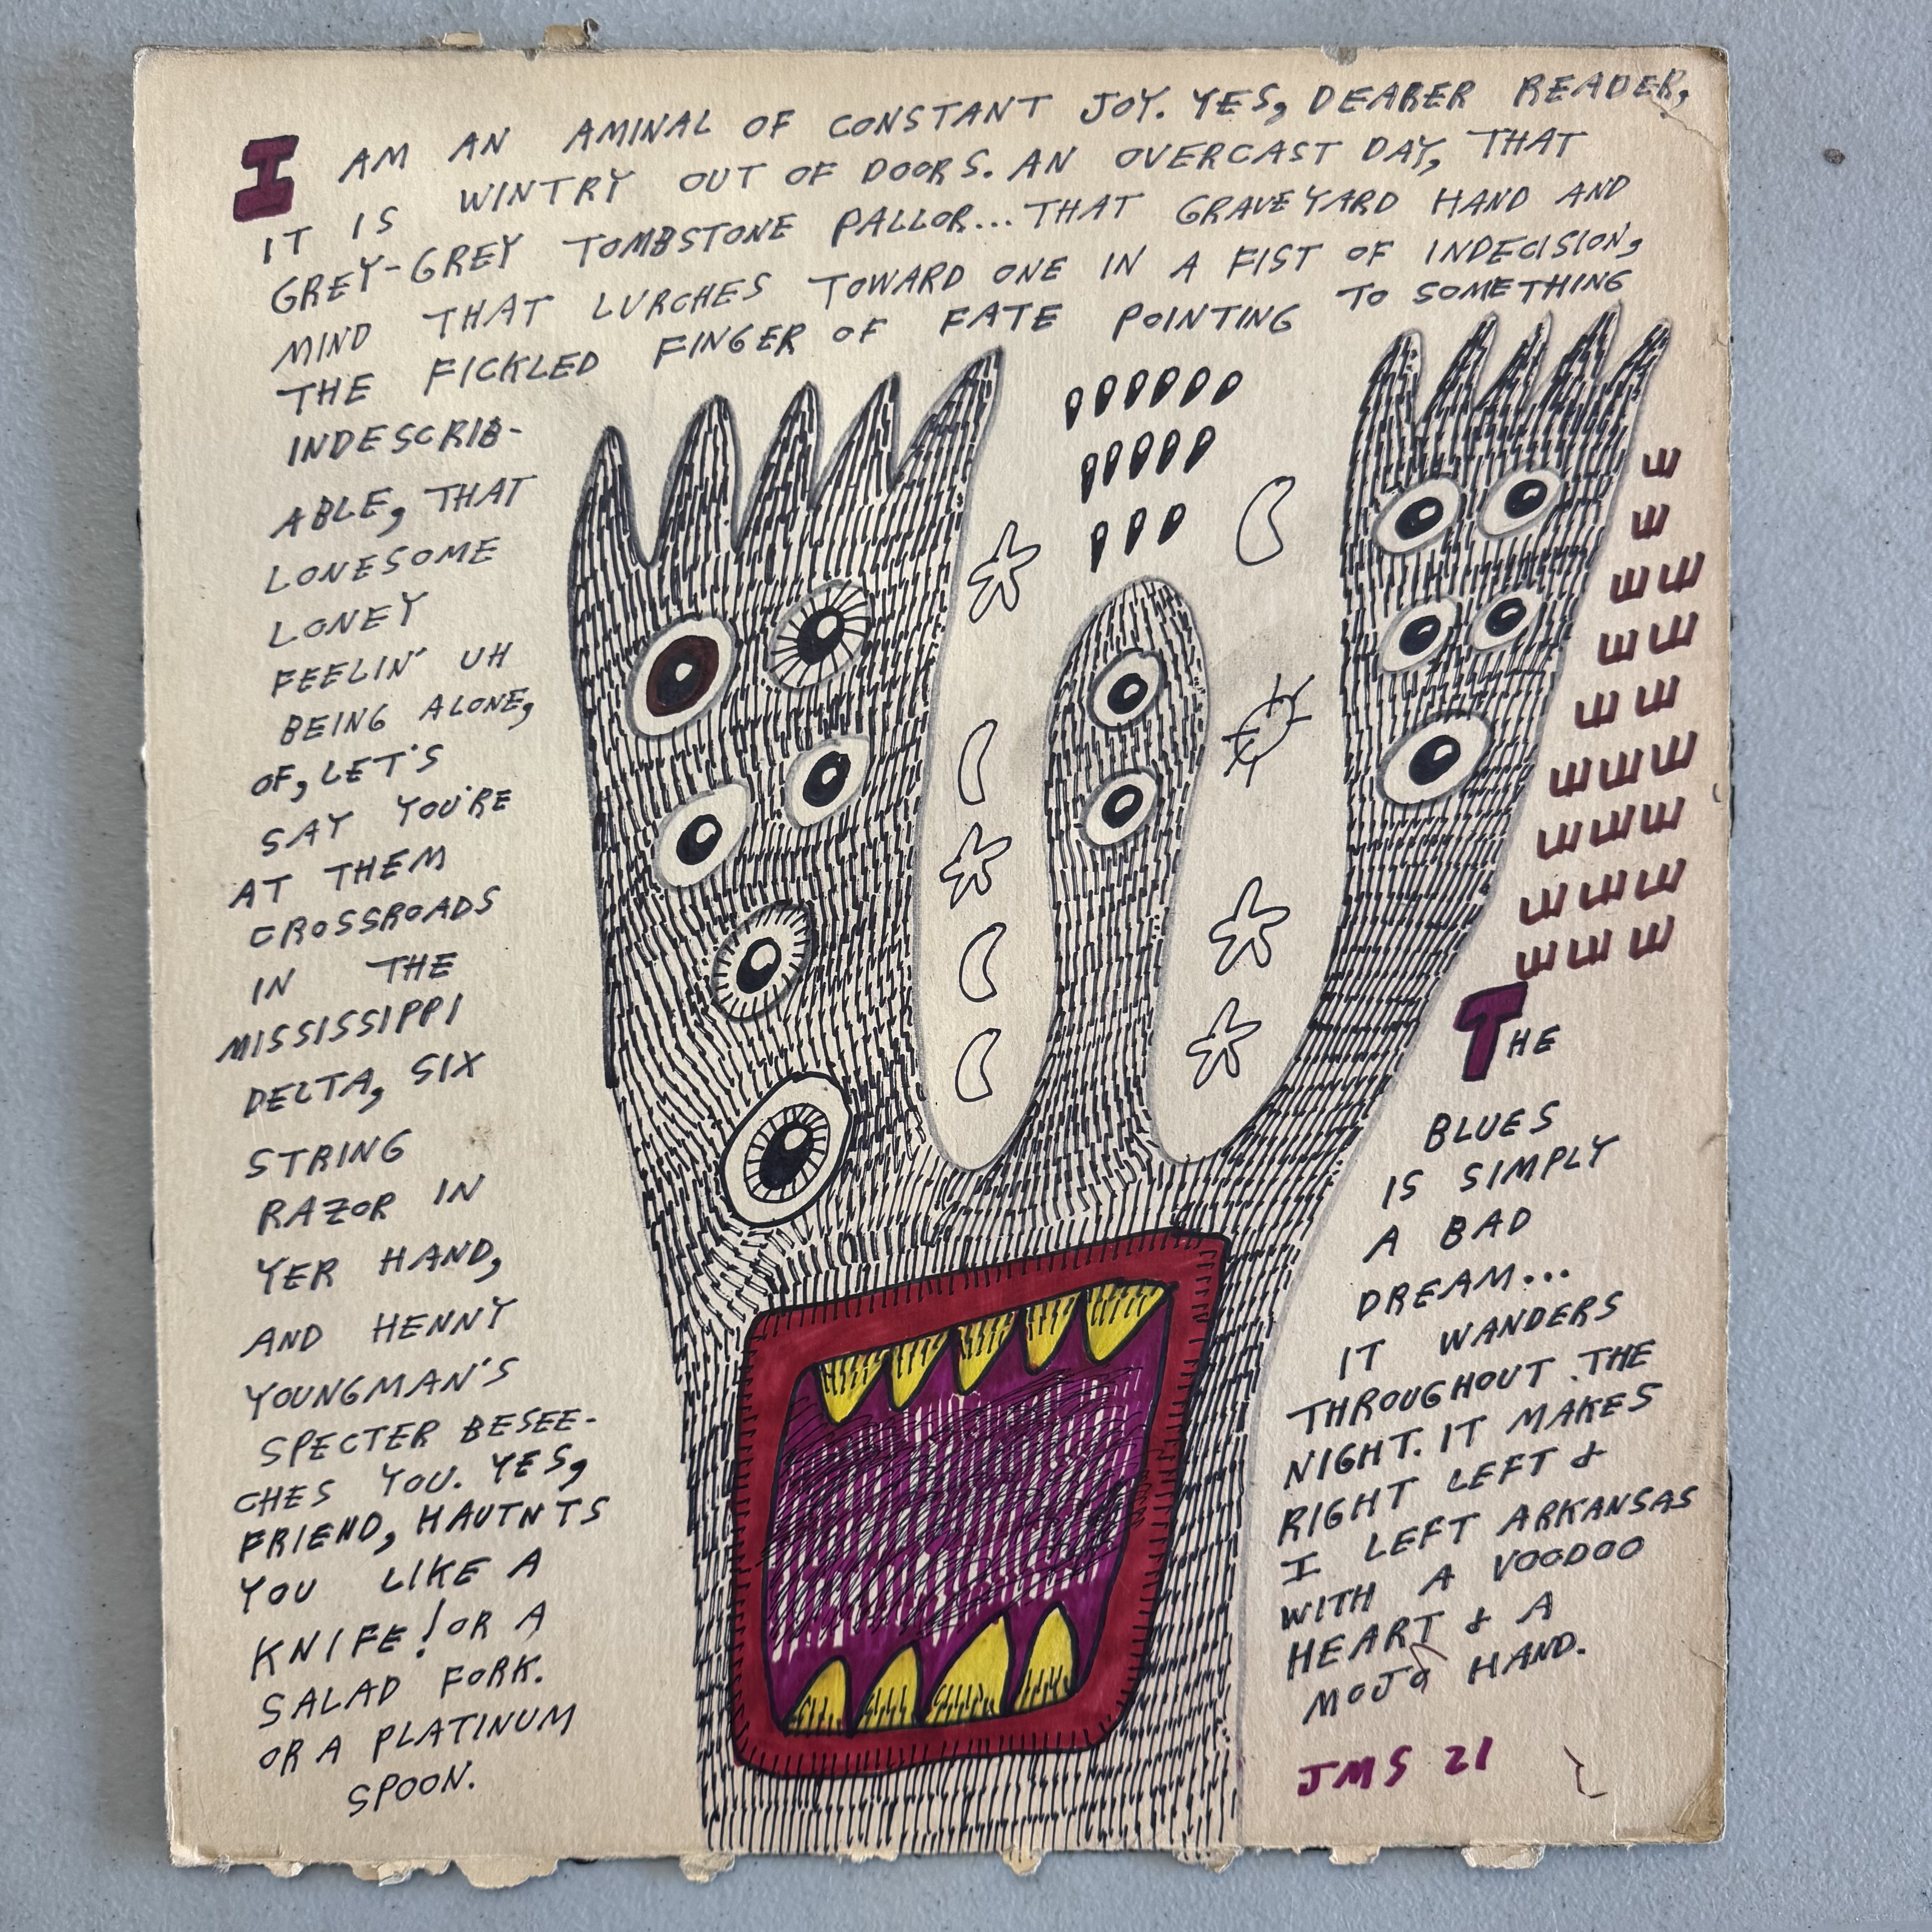 I AM AN AMINAL OF CONSTANT JOY. YES, DEARER READER,
IT IS WINTRY OUT OF DOORS. AN OVERCAST DAY, THAT
GREY-GREY TOMBSTONE PALLOR... THAT GRAVEYARD HAND AND
MIND THAT LURCHES TOWARD ONE IN A FIST OF INDECISION,
THE FICKLED FINGER OF FATE POINTING TO SOMETHING
INDESCRIB-
ABLE, THAT
LONESOME
LONEY
FEELIN' UH
BEING ALONE,
OF, LET'S
SAY YOU'RE
AT THEM
CROSSROADS
IN THE
MISSISSIPPI
DELTA, SIX
STRING
RAZOR IN
YER HAND,
AND HENNY
YOUNGMAN'S
SPECTER BESEE-
CHES YOU. YES,
FRIEND, HAUTNTS
YOU LIKE A
KNIFE! OR A
SALAD FORK.
OR A PLATINUM
SPOON.
E
E
E E
E E
E E
E E E
E E E
E E E
E E E
THE
BLUES
IS SIMPLY
A BAD
DREAM...
IT WANDERS
THROUGHOUT THE
NIGHT. IT MAKES
RIGHT LEFT &
I LEFT ARKANSAS
WITH A VOODOO
HEART & A
MOJO HAND.
JMS 21